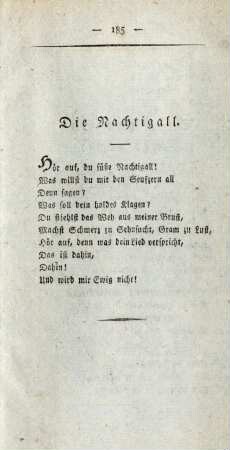 — 185 —
Die Nachtigall.
Hör auf, du süße Nachtigall!
Was willst du mir den Seufzern all
Denn sagen?
Was soll dein holdes Klagen?
Du stiehlst das Weh aus meiner Brust,
Machst Schmerz zu Sehnsucht, Gram zu Lust,
Hör auf, denn was dein Lied verspricht,
Das ist dahin,
Dahin!
Und wird mir Ewig nicht!